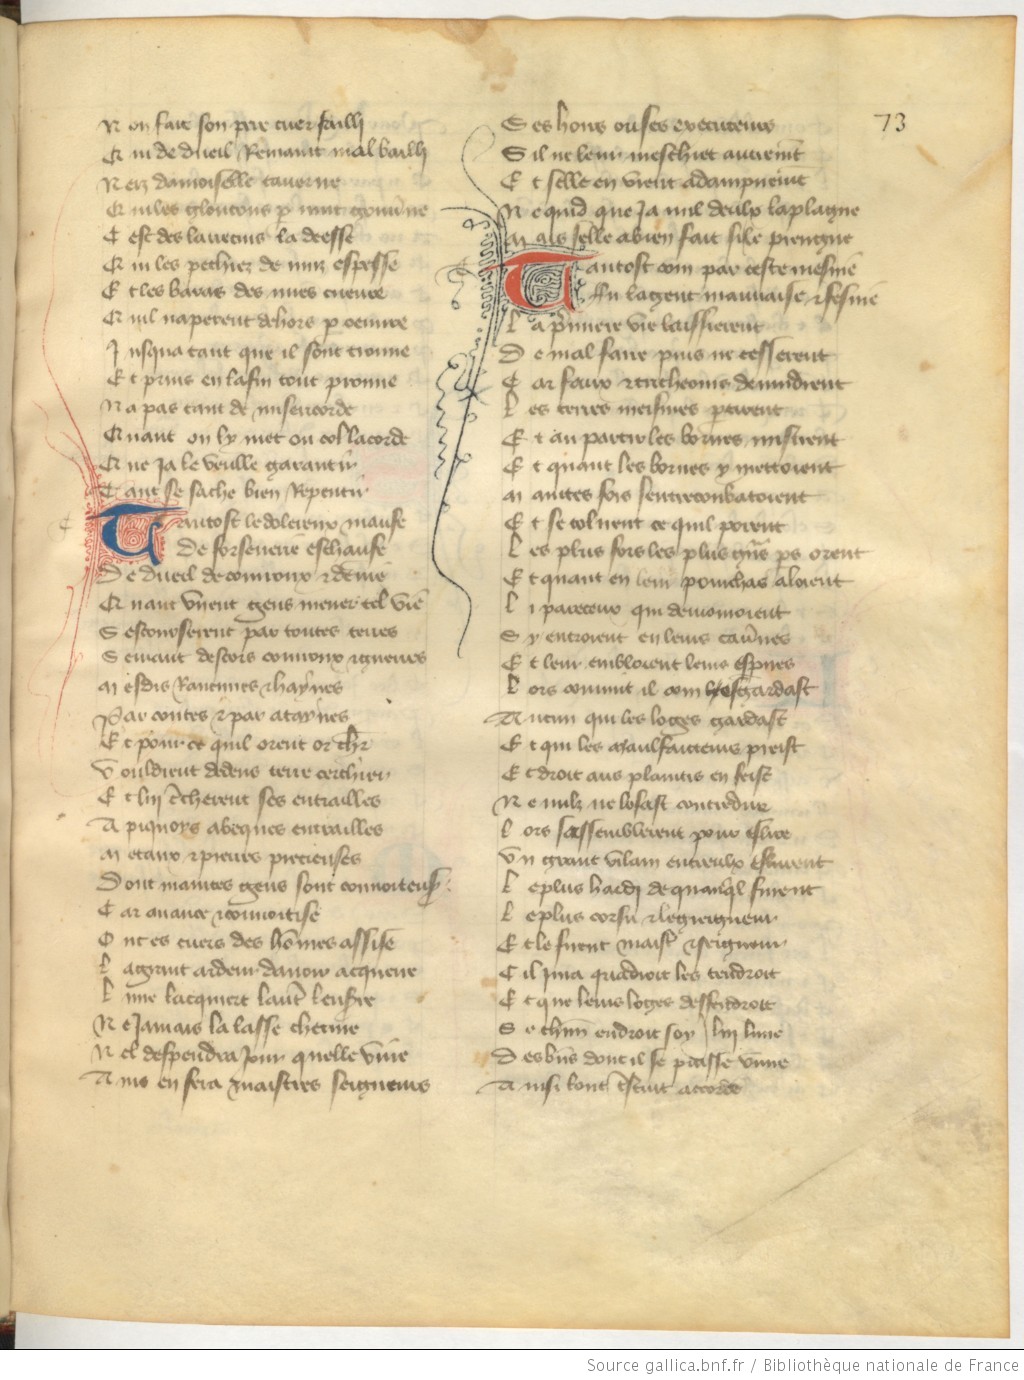 73
Non fait son pere cuer failli
Qui de dueil Remaint mal bailli
Nez damoiselle tauerne
Qui les gloutons p nuit gouuerne
C est des larrecins la deesse
Qui les pechiez de nuiz espesse
E t les baras des nues cueure
Quil naperent dehors p oeuure
J usqua tant que il sont trouue
E t prins en la fin tout prouue
N a pas tant de misericorde
Quant on ly met ou col la corde
Que ja le veulle garantir
T ant se sache bien Repentir
Tantost le dolereux maufe
De forsenerie eschaufe
D e dueil de courroux & denuie
Quant virent gens mener tel vie
S escourserent par toutes terres
S emant descors courroux & guerres
M esdis Rancunes & haynes
P ar contes & par ataynes
E t pour ce quil orent or chr
V ouldrent dedens terre cerchier
E t luy tcherent ses entrailles
A piquoys abeques entrailles
M etaux & pierres precieuses
D ont maintes gens sont conuoiteus
C ar auarice & conuoitise
O nt es cuers des hommes assise
L a grant ardeur dauoir acquerre
L une lacquiert laute lenserre
N e jamais la lasse chetiue
N el despendra jour quelle viue
A ins en fera maistres seigneurs
S es hoirs ou ses executeurs
S il ne leur meschiet autremt
E t selle en vient a dampnemt
N e quid que Ja nul deulx la plaigne
M ais selle a bien fait sile preingne
Tantost com par ceste mesnie
Fu la gent mauuaise & fesnie
L a pmiere vie laissierent
D e mal faire puis ne cesserent
C ar faux & tricheours deuindrent
L es terres meismes partirent
E t au partir les bornes mistrent
E t quant les bornes y mettoient
M aintes fois sentrecombatoient
E t se tolurent ce quil porent
L es plus fors les plus gns ps orent
E t quant en leur pourchas aloient
L i pareceux qui demouroient
S y entroient en leurs cauernes
E t leur embloient leurs espnes
L ors conuint il com les gardast
A ucun qui les loges gardast
E t qui les maulfaicteurs preist
E t droit aus plaintis en feist
N e nulz ne losast contredire
L ors sassemblerent pour eslire
V n grant vilain entreulx eslurent
L e plus hardi de quanql furent
L e plus corsu & le greigneur
E t le firent maist & seigneur
C il jura que droit les tendroit
E t que leurs loges deffendroit
S e chun endroit soy luy liure
D es biens dont il se puisse viure
A insi lont testuit accorde